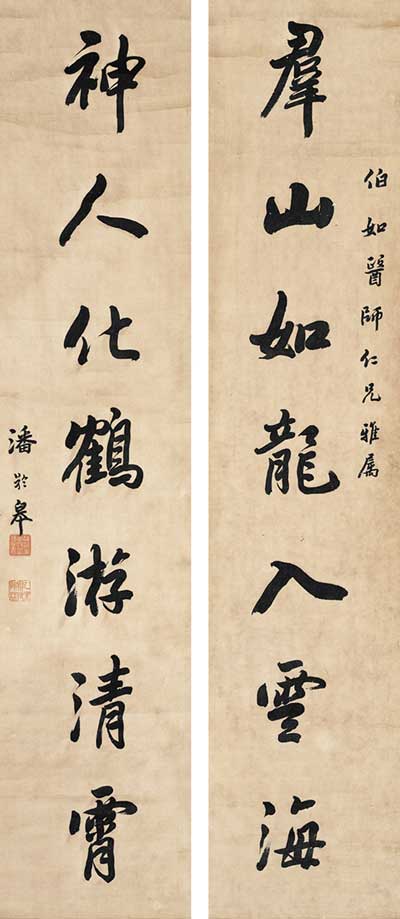 伯如醫師仁兄雅屬
羣山如龍入雲海
神人化鶴游清霄
潘齡皋